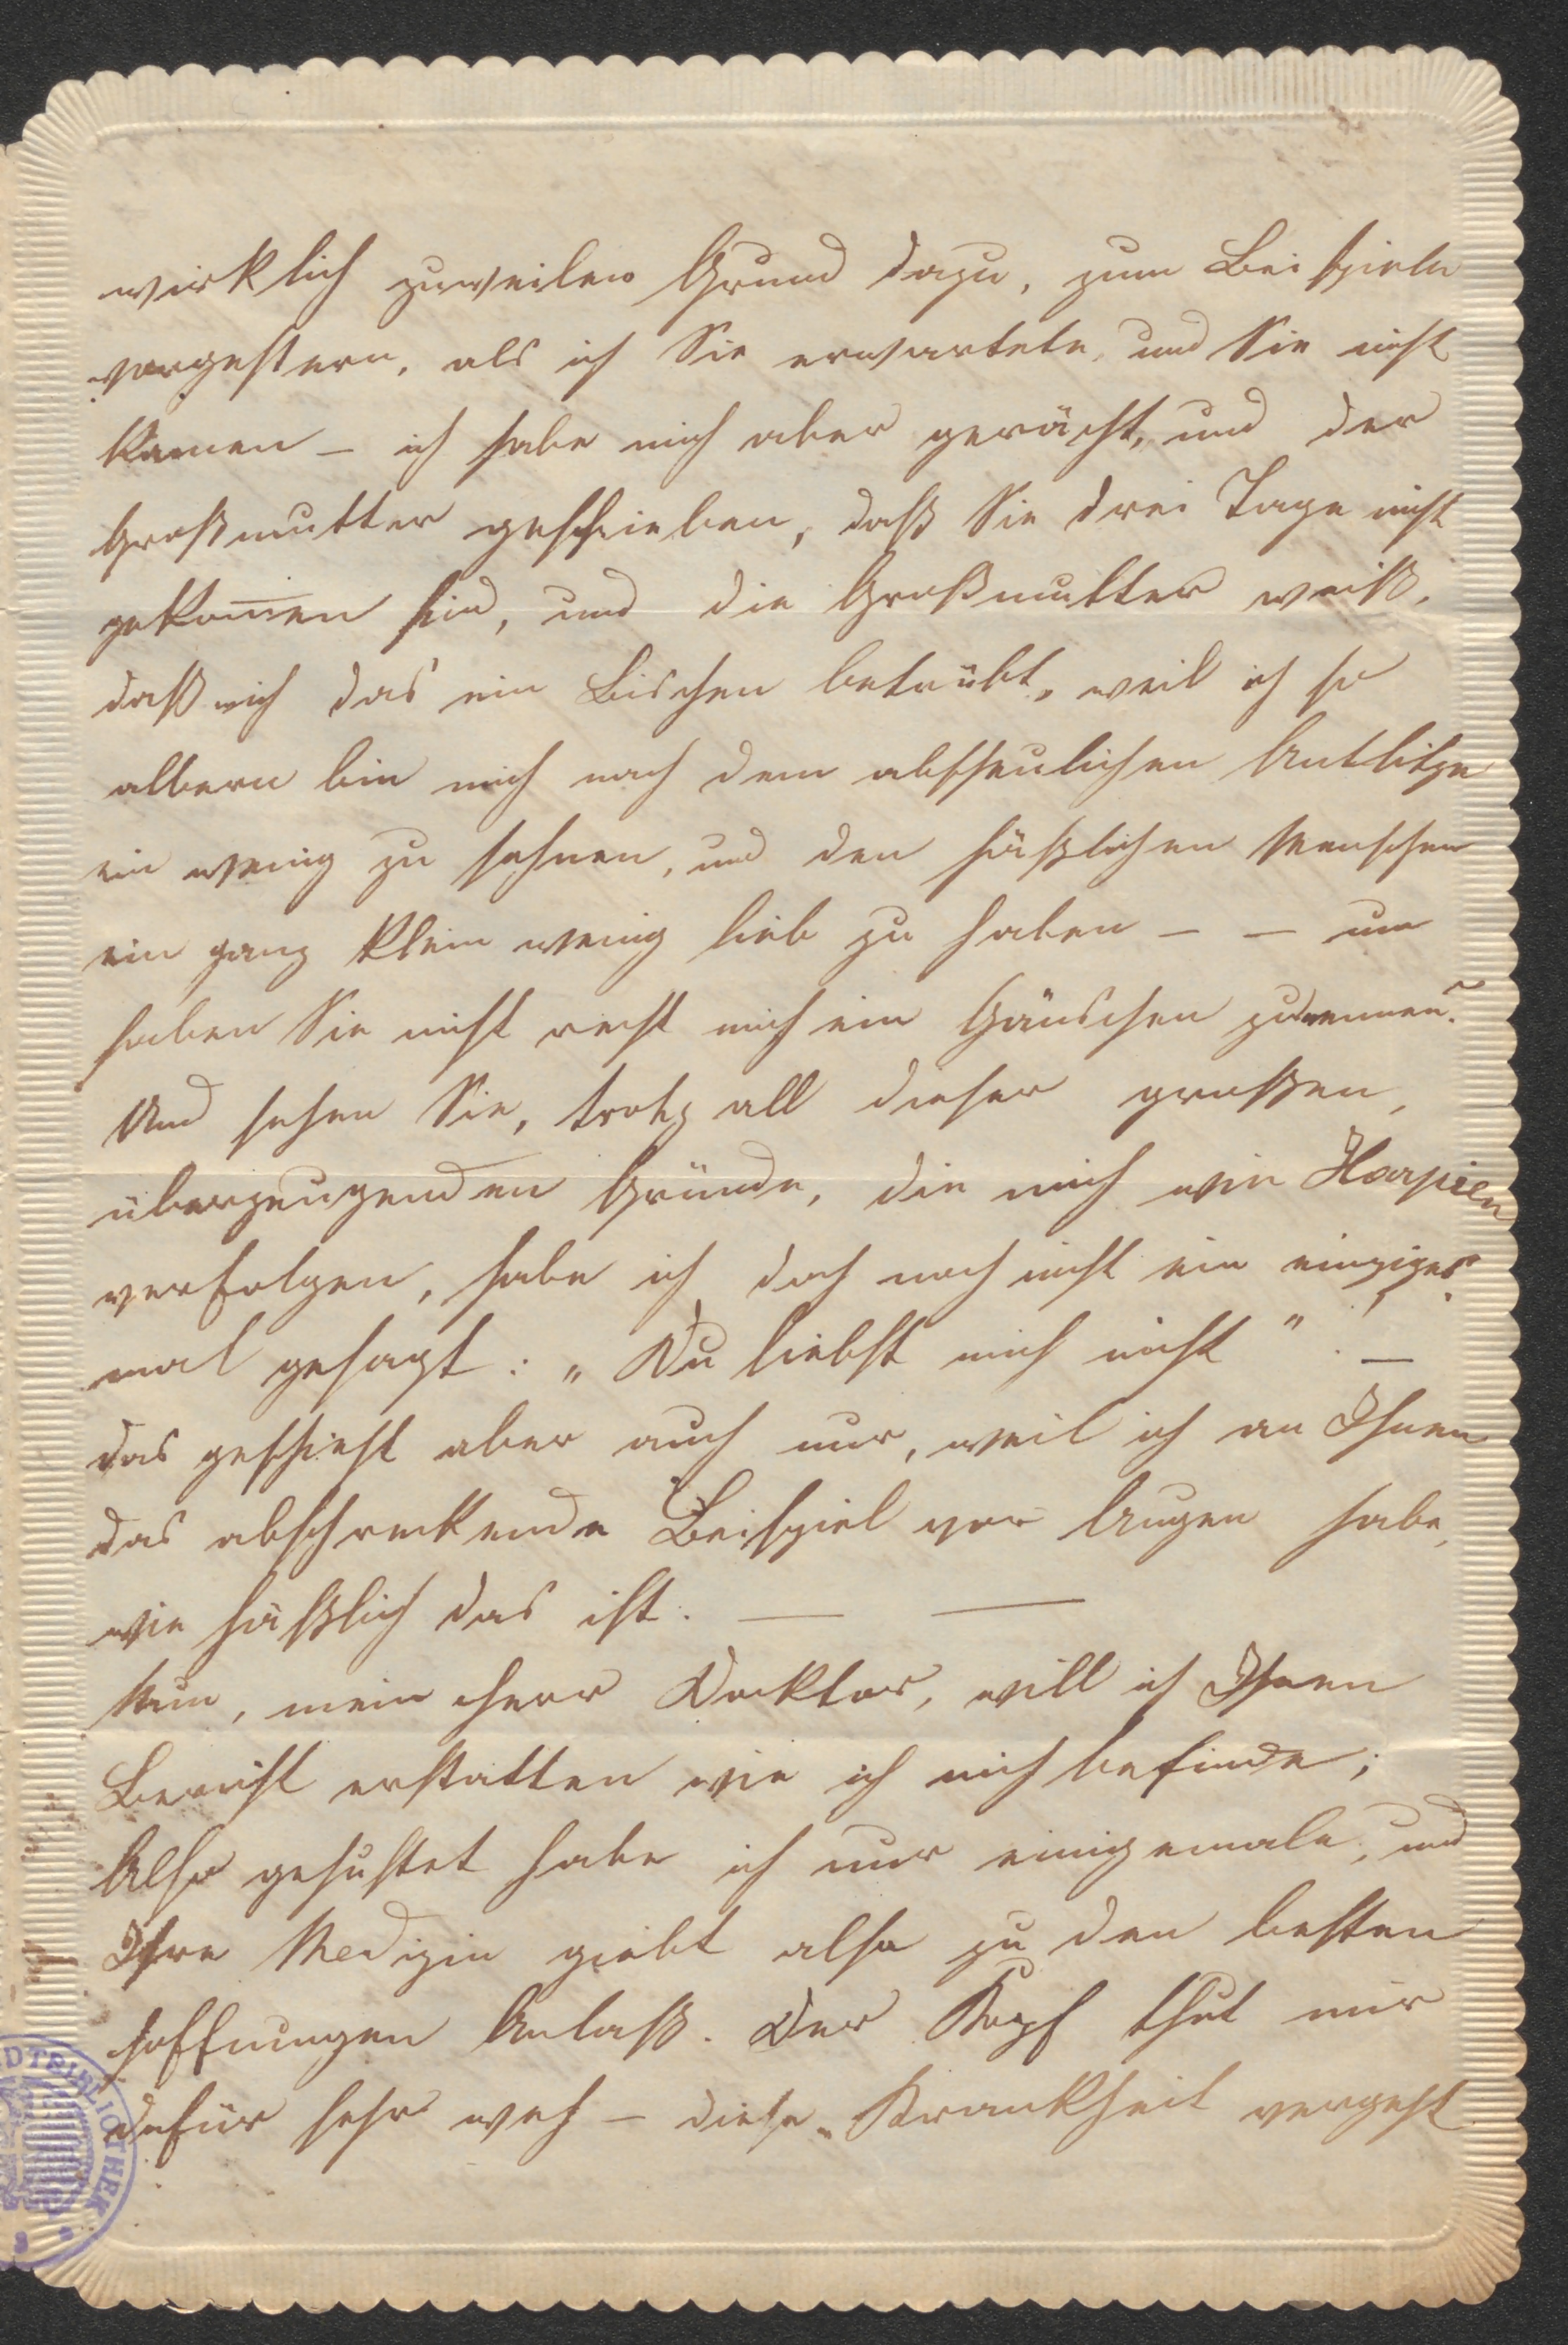 wirklich zuweilen Grund dazu, zum Beispiele
vorgestern, als ich Sie erwartete, und Sie nicht
kamen – ich habe mich aber gerächt, und der
Großmutter geschrieben, daß Sie drei Tage nicht
gekom̅en sind, und die Großmutter weiß,
daß mich das ein Bischen betrübt, weil ich so
albern bin mich nach dem abscheulichen Antlitze
ein wenig zu sehnen, und den häßlichen Menschen
ein ganz klein wenig lieb zu haben – – nun
haben Sie nicht recht mich ein Gänschen zu nennen?
Und sehen Sie, trotz all dieser großen,
überzeugenden Gründe, die mich wie Harpien
verfolgen, habe ich doch noch nicht ein einziges
mal gesagt: „Du liebst mich nicht". –
das geschieht aber auch nur, weil ich an Ihnen
das abschreckende Beispiel vor Augen habe,
wie häßlich das ist. — —
Nun, mein Herr Docktor, will ich Ihnen
Bericht erstatten wie ich mich befinde;
Also gehustet habe ich nur einigemale, und
Ihre Medizin giebt also zu den besten
Hoffnungen Anlaß. Der Kopf thut mir
dafür sehr weh – diese Krankheit vergeht
STADTBIBLIOTHEK